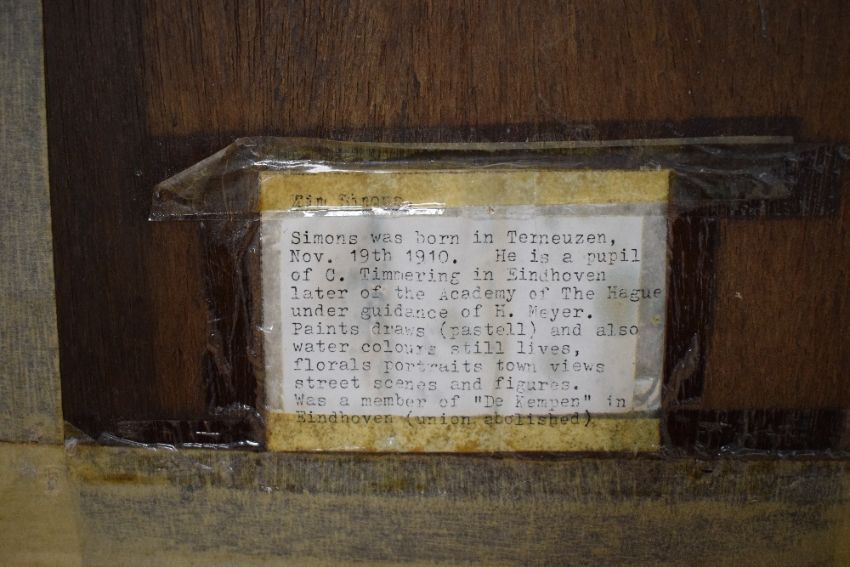 Simons
Simons was born in Terneuzen,
Nov. 19th 1910. He is a pupil
of C. Timmering in Eindhoven
later of the Academy of The Hague
under guidance of H. Meyer.
Paints draws (pastell) and also
water colours still lives,
florals portraits town views
street scenes and figures.
Was a member of "De Kempen" in
Eindhoven (union abolished)